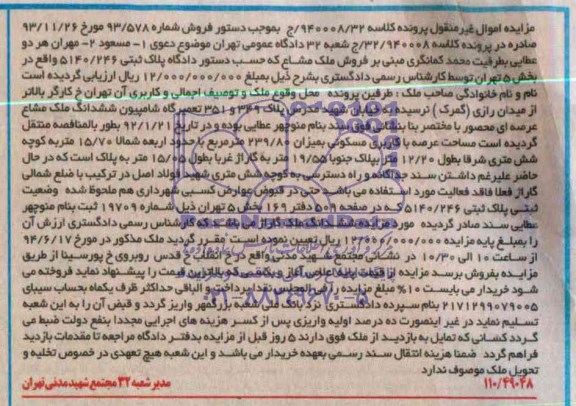 مزایده اموال غیرمنقول پرونده کلاسه ۹۴۰۰۰۸/۳۲/ج بموجب دستور فروش شماره ۹۳/۵۷۸ مورخ ۹۳/۱۱/۲۶
صادره در پرونده کلاسه ۹۴۰۰۰۸/۳۲/ج شعبه ۳۲ دادگاه عمومی تهران موضوع دعوی ۱- مسعود ۲- مهران هر دو
عطایی بطرفیت محمد کمانگری مبنی بر فروش ملک مشاع که حسب دستور دادگاه پلاک ثبتی ۵۱۴۰/۲۴۶ واقع در
بخش ۵ تهران توسط کارشناس رسمی دادگستری بشرح ذیل بمبلغ ۱۲/۰۰۰/۰۰۰/۰۰۰ ریال ارزیابی گردیده است
نام و نام خانوادگی صاحب ملک : طرفین پرونده محل وقوع ملک و توصیف اجمالی و کاربری آن تهران خ کارگر بالاتر
از میدان رازی (گمرک) نرسیده به خیابان شهید مدرس پلاک ۳۴۹ و ۳۵۱ تعمیرگاه شامپیون ششدانگ ملک مشاع
عرصه ای محصور با مختصر بنا بنشانی فوق سند بنام منوچهر عطایی بوده و در تاریخ ۹۲/۱/۲۱ بطور بالمناصفه منتقل
گردیده است مساحت عرصه با کاربری مسکونی بمیزان ۲۳۹/۸۰ مترمربع با حدود اربعه شمالا ۱۵/۷۰ متر به کوچه
شش متری شرقا بطول ۱۲/۲۰ متر بپلاک جنوبا ۱۹/۵۵ متر به گاراژ غربا بطول ۱۵/۰۵ متر به پلاک است که در حال
حاضر علیرغم داشتن سند جداگانه و راه دسترسی به کوچه شش متری شهید فولاد اصل در ترکیب با ضلع شمالی
گاراژ فعلا فاقد فعالیت مورد استفاده می باشد حتی در قبوض عوارض کسبی شهرداری هم ملحوظ شده وضعیت
ثبتی پلاک ثبتی ۵۱۴۰/۲۴۶ که در صفحه ۵۰۹ دفتر ۱۶۹ بخش ۵ تهران ذیل شماره ۱۹۷۰۹ ثبت بنام منوچهر
عطایی سند صادر گردیده مورد مزایده ششدانگ ملک گاراژ می باشد که کارشناس رسمی دادگستری ارزش آن
را بمبلغ پایه مزایده ۱۲/۰۰۰/۰۰۰/۰۰۰ ریال تعیین نموده است مقرر گردید ملک مذکور در مورخ ۹۴/۶/۱۷
از ساعت ۱۰ الی ۱۰/۳۰ در نشانی مجتمع شهید مدنی واقع در خ انقلاب خ قدس روبروی خ پورسینا از طریق
مزایده بفروش برسد مزایده از قیمت پایه اعلامی آغاز و بکسی که بالاترین قیمت را پیشنهاد نماید فروخته می
شود خریدار می بایست ۱۰٪ مبلغ مزایده را فی المجلس نقدا پرداخت و الباقی حداکثر ظرف یکماه بحساب سیبای
۲۱۷۱۲۹۹۰۷۹۰۰۵ بنام سپرده دادگستری نزد بانک ملی شعبه بزرگمهر واریز گردد و قبض آن را به این شعبه
تسلیم نماید در غیر اینصورت ده درصد اولیه واریزی پس از کسر هزینه های اجرایی مجددا بنفع دولت ضبط می
گردد کسانی که تمایل به بازدید از ملک فوق دارند ۵ روز قبل از مزایده بدفتر دادگاه مراجعه تا مقدمات بازدید
فراهم گردد ضمنا هزینه انتقال سند رسمی بعهده خریدار می باشد و این شعبه هیچ تعهدی در خصوص تخلیه و
تحویل ملک موصوف ندارد
۱۱۰/۴۹۰۴۸ مدیر شعبه ۳۲ مجتمع شهید مدنی تهران